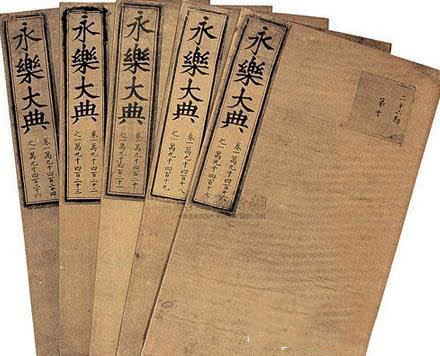 永樂大典
卷一萬九千四百十六
之一萬九千四百十七
第十
永樂大典
卷一萬九千四百十八
之一萬九千四百十九
永樂大典
卷一萬九千四百二十
之一萬九千四百二十一
永樂大典
卷一萬九千四百二十二
之一萬九千四百二十三
永樂大典
卷一萬九千四百二十四
之一萬九千四百二十六